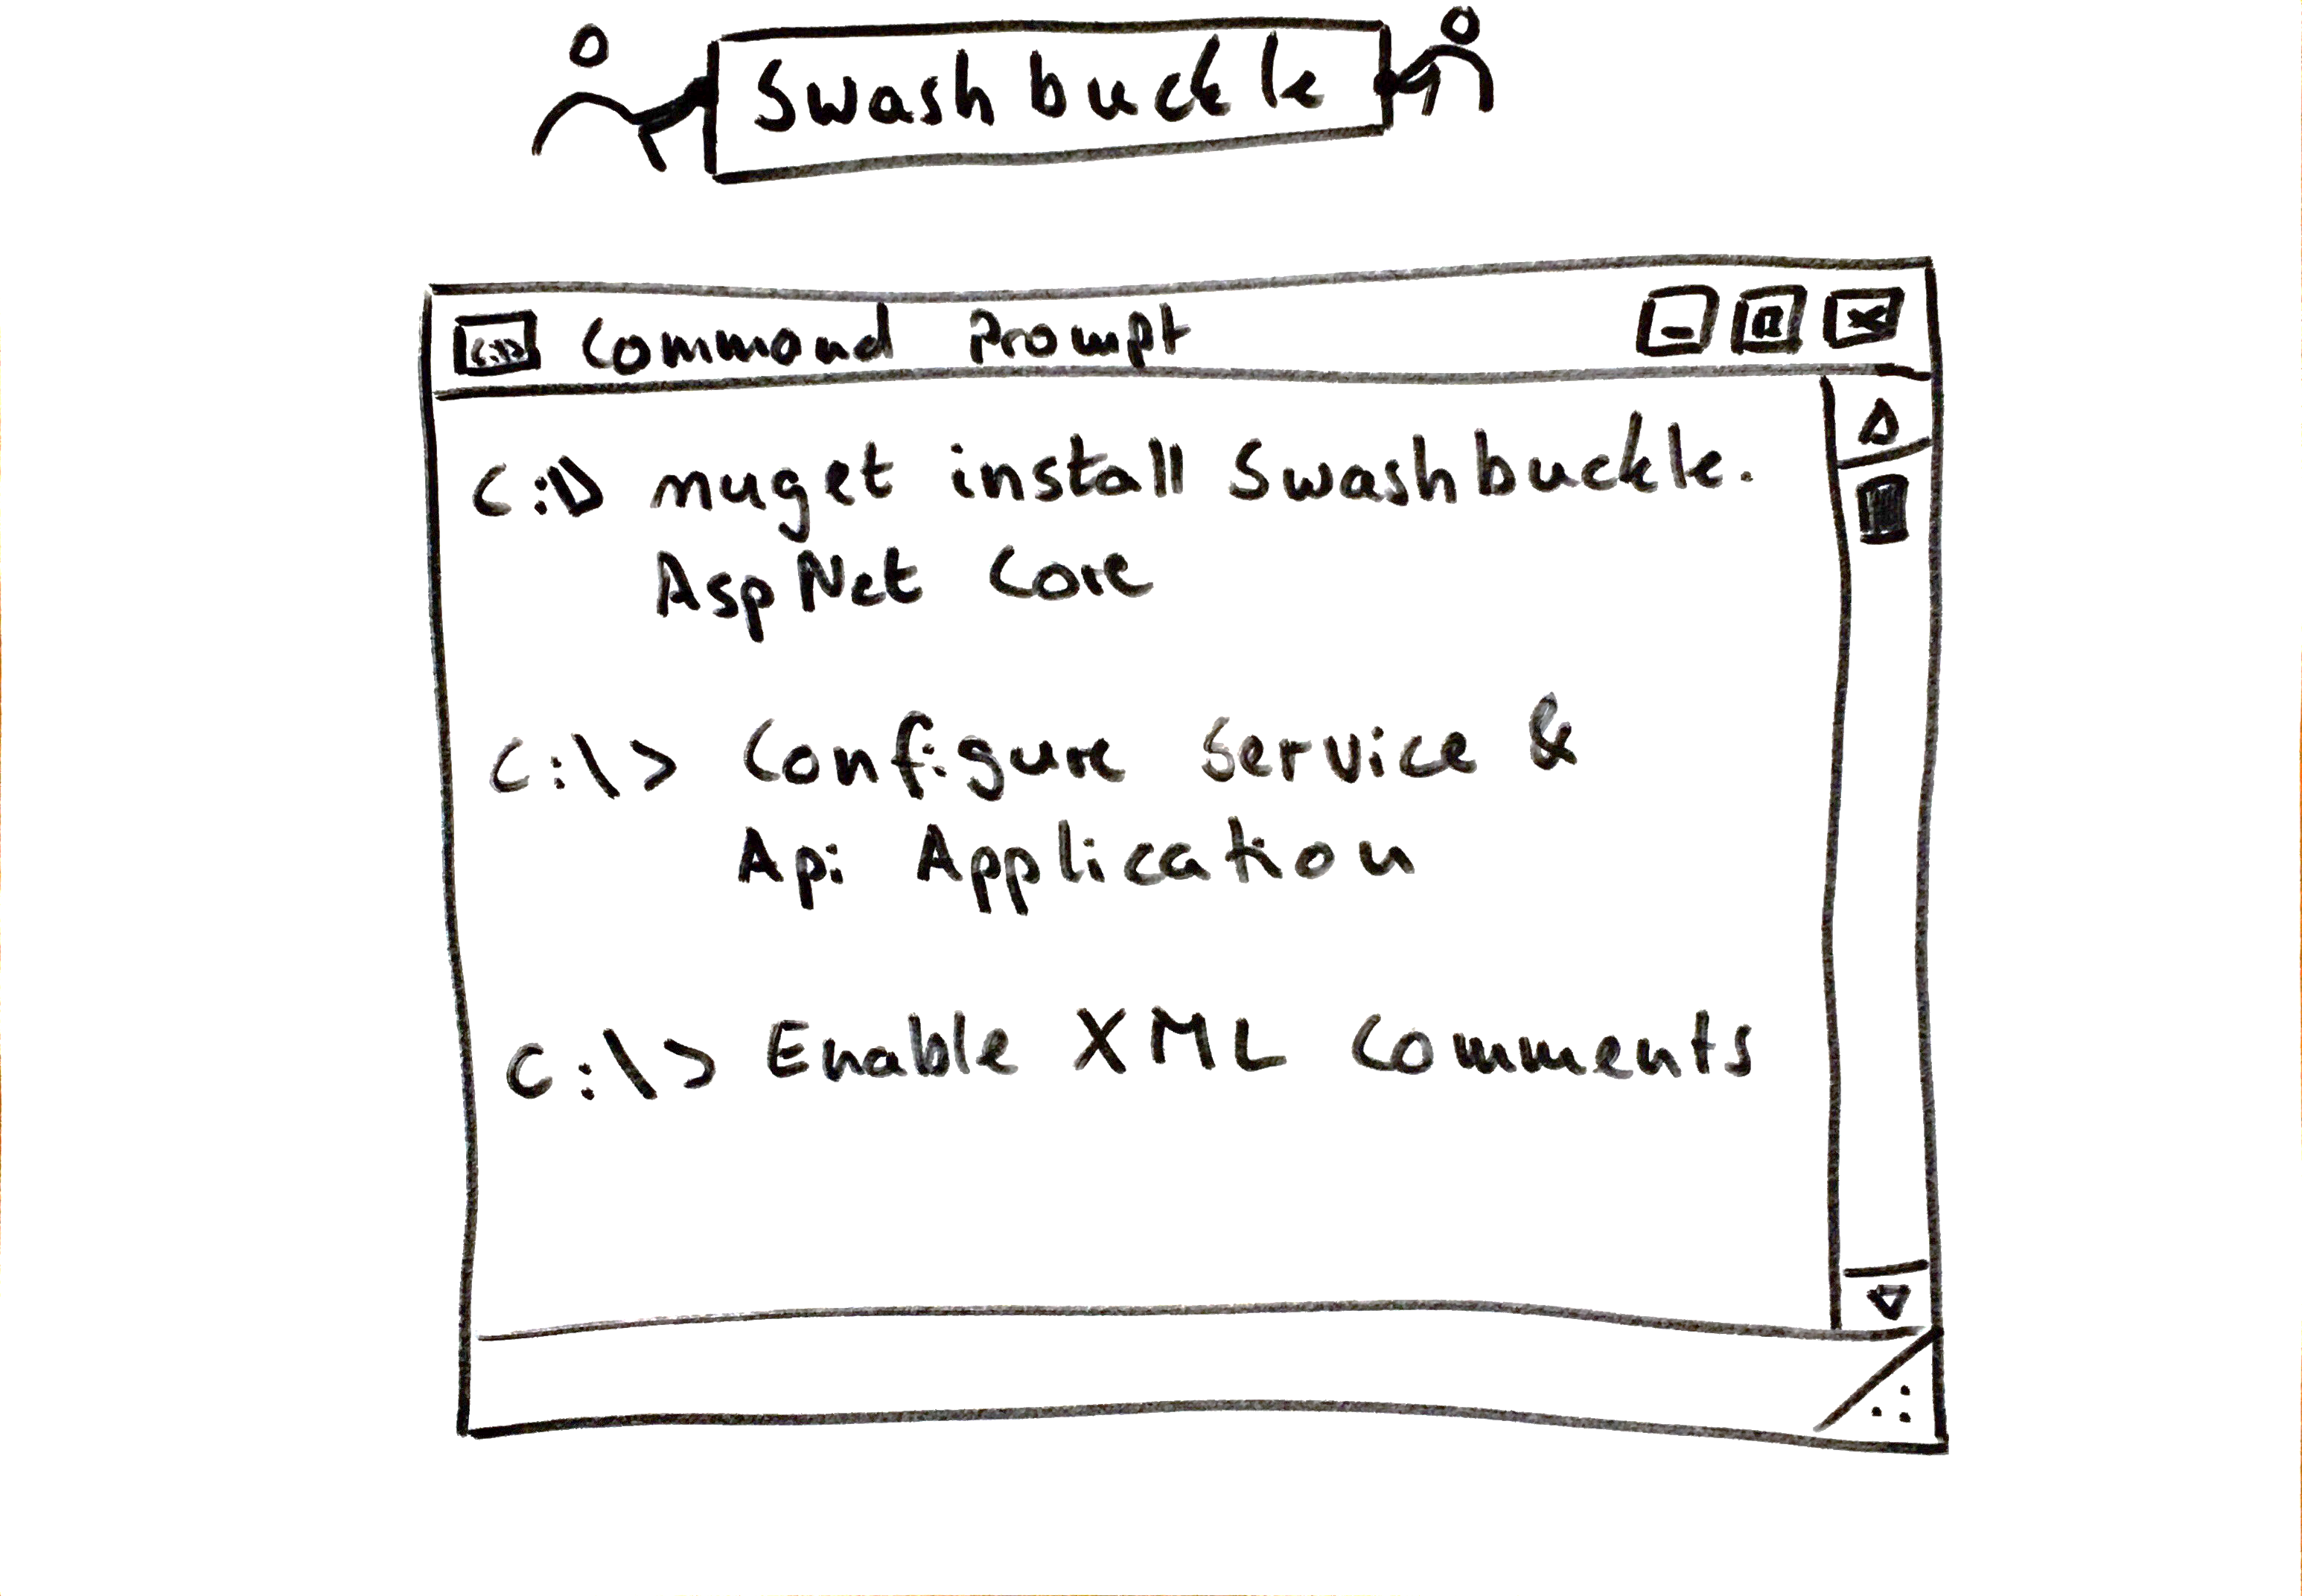 Swashbuckle
C:\> Command Prompt
C:\> nuget install Swashbuckle.
AspNet Core
C:\> Configure Service &
Api Application
C:\> Enable XML Comments